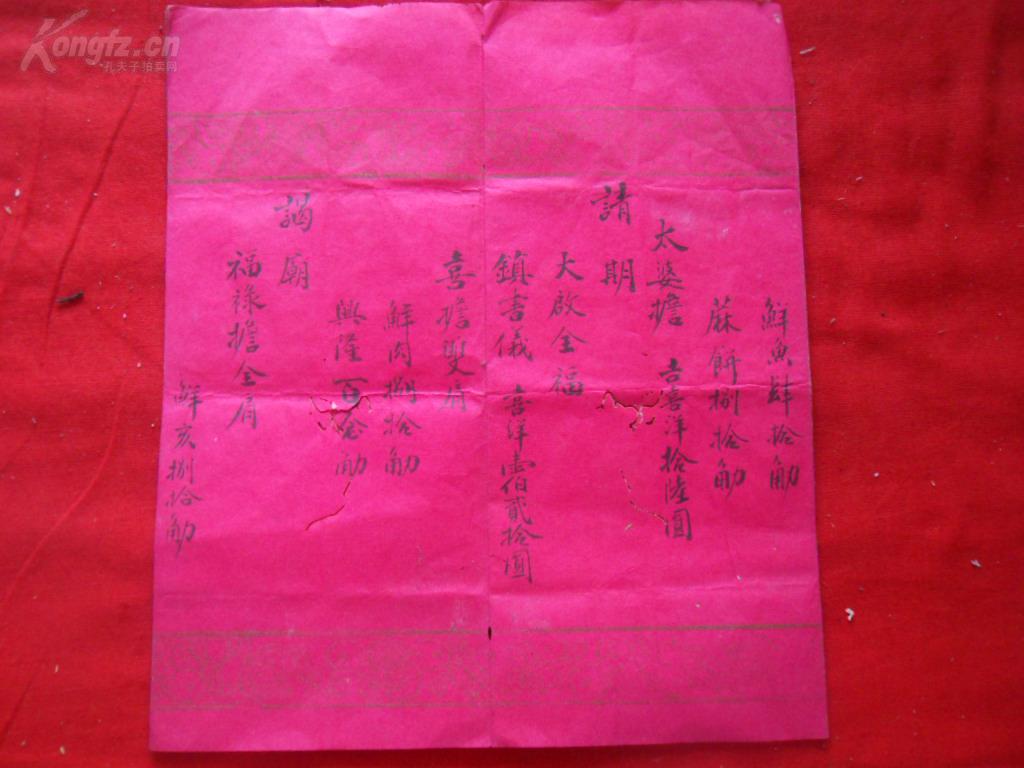 Kongfz.cn
孔夫子拍卖网
鮮魚肆拾觔
蔴餅捌拾觔
太婆擔 喜洋拾陸圓
請期
大啟全福
鎮書儀 喜洋壹佰貳拾圓
喜擔雙肩
鮮肉捌拾觔
興隆百觔
謁廟
福祿擔全肩
鮮亥捌拾觔